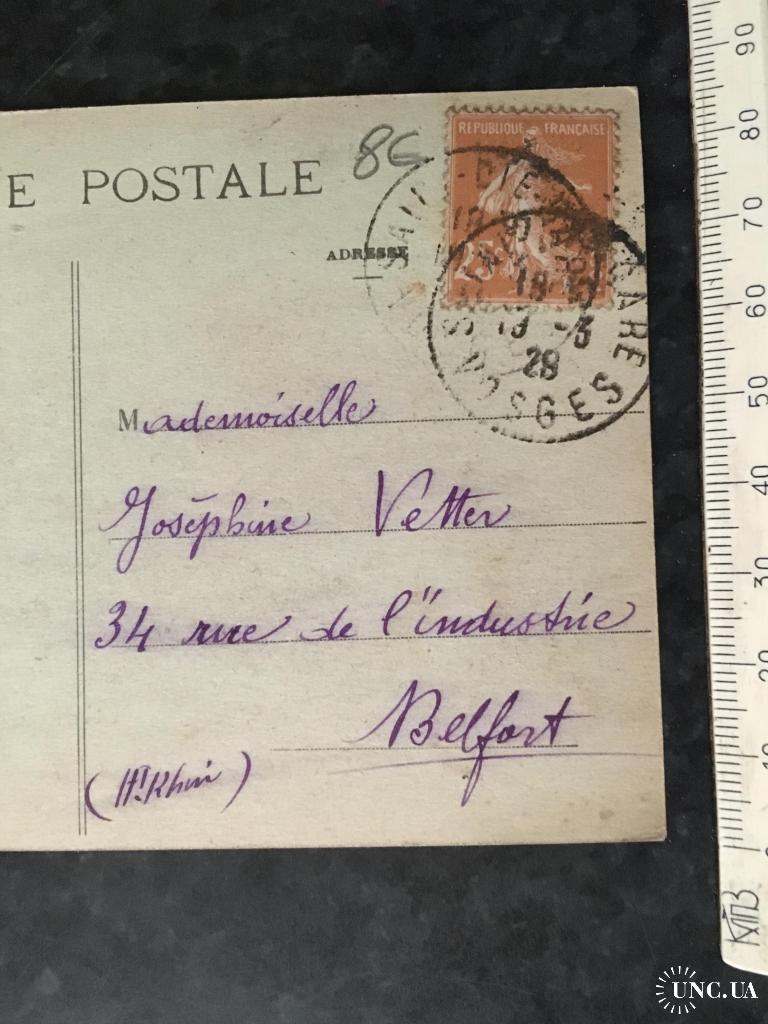 E POSTALE
86
ADRESSE
REPUBLIQUE FRANÇAISE
25c
GARE
VOSGES
18
19 -3
28
Mademoiselle
Joséphine Vetter
34 rue de l'industrie
Belfort
(Ht Rhin)
90
80
70
60
50
40
30
20
10
0
КПЗ
UNC.UA